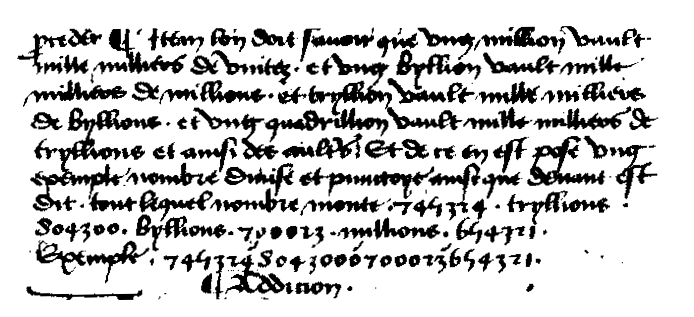 proceder ¶ Item lon doit savoir que vng million vault
mille milliers de vnitez · et vng byllion vault mille
milliers de millions · et tryllion vault mille milliers
de byllions · et vng quadrillion vault mille milliers de
tryllions et ainsi des aultrs : Et de ce en est pose vng
exemple nombre divise et punctoye ainsi que devant est
dit · tout lequel nombre monte · 745324 · tryllions ·
804300 · byllions · 700023 · millions · 654321 ·
Exemple · 745324'8043000'700023'654321 ·
¶ Addicion ·